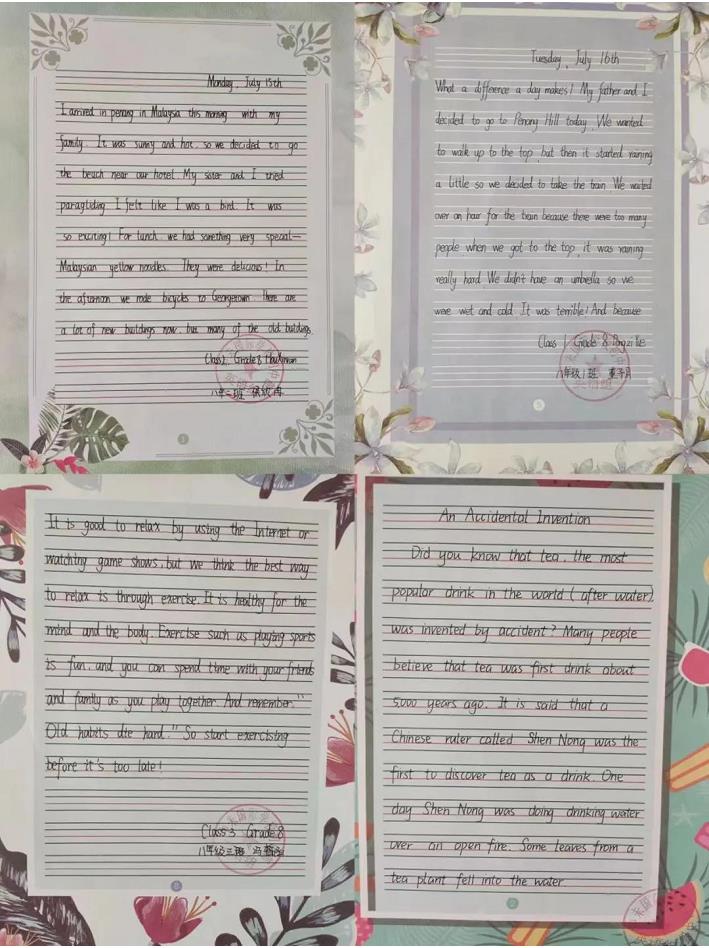 Monday, July 15th
I arrived in penang in Malaysia this morning with my
family. It was sunny and hot, so we decided to go
the beach near our hotel. My sister and I tried
paragliding. I felt like I was a bird. It was
so exciting! For lunch, we had something very special—
Malaysian yellow noodles. They were delicious! In
the afternoon, we rode bicycles to Georgetown. There are
a lot of new buildings now, but many of the old buildings
Class2, Grade8
八年二班
3
Tuesday, July 16th
What a difference a day makes! My father and I
decided to go to Penang Hill today. We wanted
to walk up to the top, but then it started raining
a little so we decided to take the train. We waited
over an hour for the train because there were too many
people when we got to the top, it was raining
really hard. We didn't have an umbrella so we
were wet and cold. It was terrible! And because
Class 1 Grade 8
八年级1班
5
It is good to relax by using the Internet or
watching game shows, but we think the best way
to relax is through exercise. It is healthy for the
mind and the body. Exercise such as playing sports
is fun, and you can spend time with your friends
and family as you play together. And remember, "
Old habits die hard." So start exercising
before it's too late!
Class 3 Grade 8
八年级三班
8
An Accidental Invention
Did you know that tea, the most
popular drink in the world (after water),
was invented by accident? Many people
believe that tea was first drink about
5,000 years ago. It is said that a
Chinese ruler called Shen Nong was the
first to discover tea as a drink. One
day Shen Nong was doing drinking water
over an open fire. Some leaves from a
tea plant fell into the water.
2